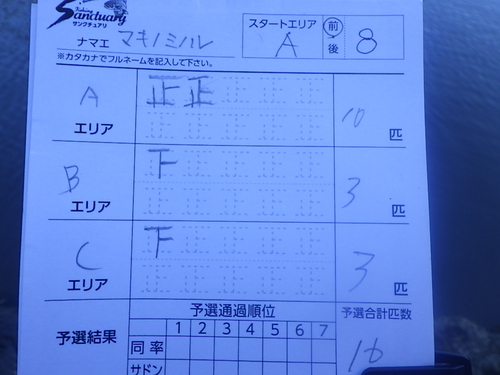 Fishing Sanctuary
サンクチュアリ
ナマエ マキノミノル
※カタカナでフルネームを記入して下さい。
スタートエリア A 前 後 8
A エリア 正 正 10 匹
B エリア 下 3 匹
C エリア 下 3 匹
予選結果 予選通過順位 予選合計匹数
1 2 3 4 5 6 7
同率 16
サドン